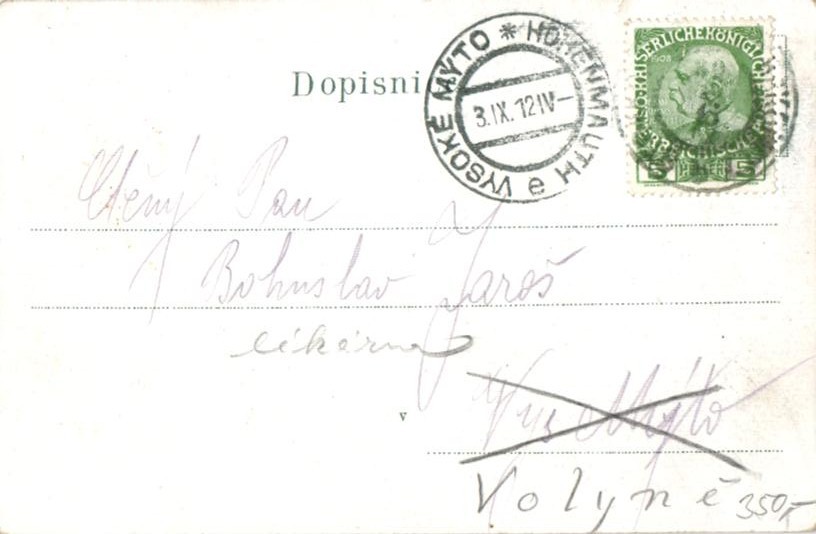 Dopisni
VYSOKÉ MÝTO * HOHENMAUTH e
3.IX.12IV-
KAISERLICHEKÖNIGLICHE ÖSTERREICHISCHE POST
1908
5 5
Ctěný Pan
Bohuslav Jaroš
lékárna
v
Vys Mýto
Volyně
350,-